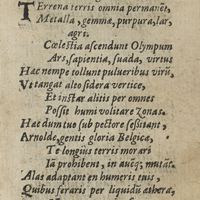 TErrena terris omnia permanẽt,
Metalla, gemmæ, purpura, lar,
agri.
Cœlestia ascendunt Olympum
Ars, sapientia, suada, virtus
Hac nempe tollunt pulueribus virũ,
Vt tangat alto sidera vertice,
Et instar alitis per omnes
Possit humi volitare zonas.
Hæ dum tuo sub pectore sessitant,
Arnolde, gentis gloria Belgicæ,
Te longius terris morari
Iã prohibent, in aucq; mutãt.
Alas adaptant en humeris tuis,
Quibus feraris per liquidũ æthera,